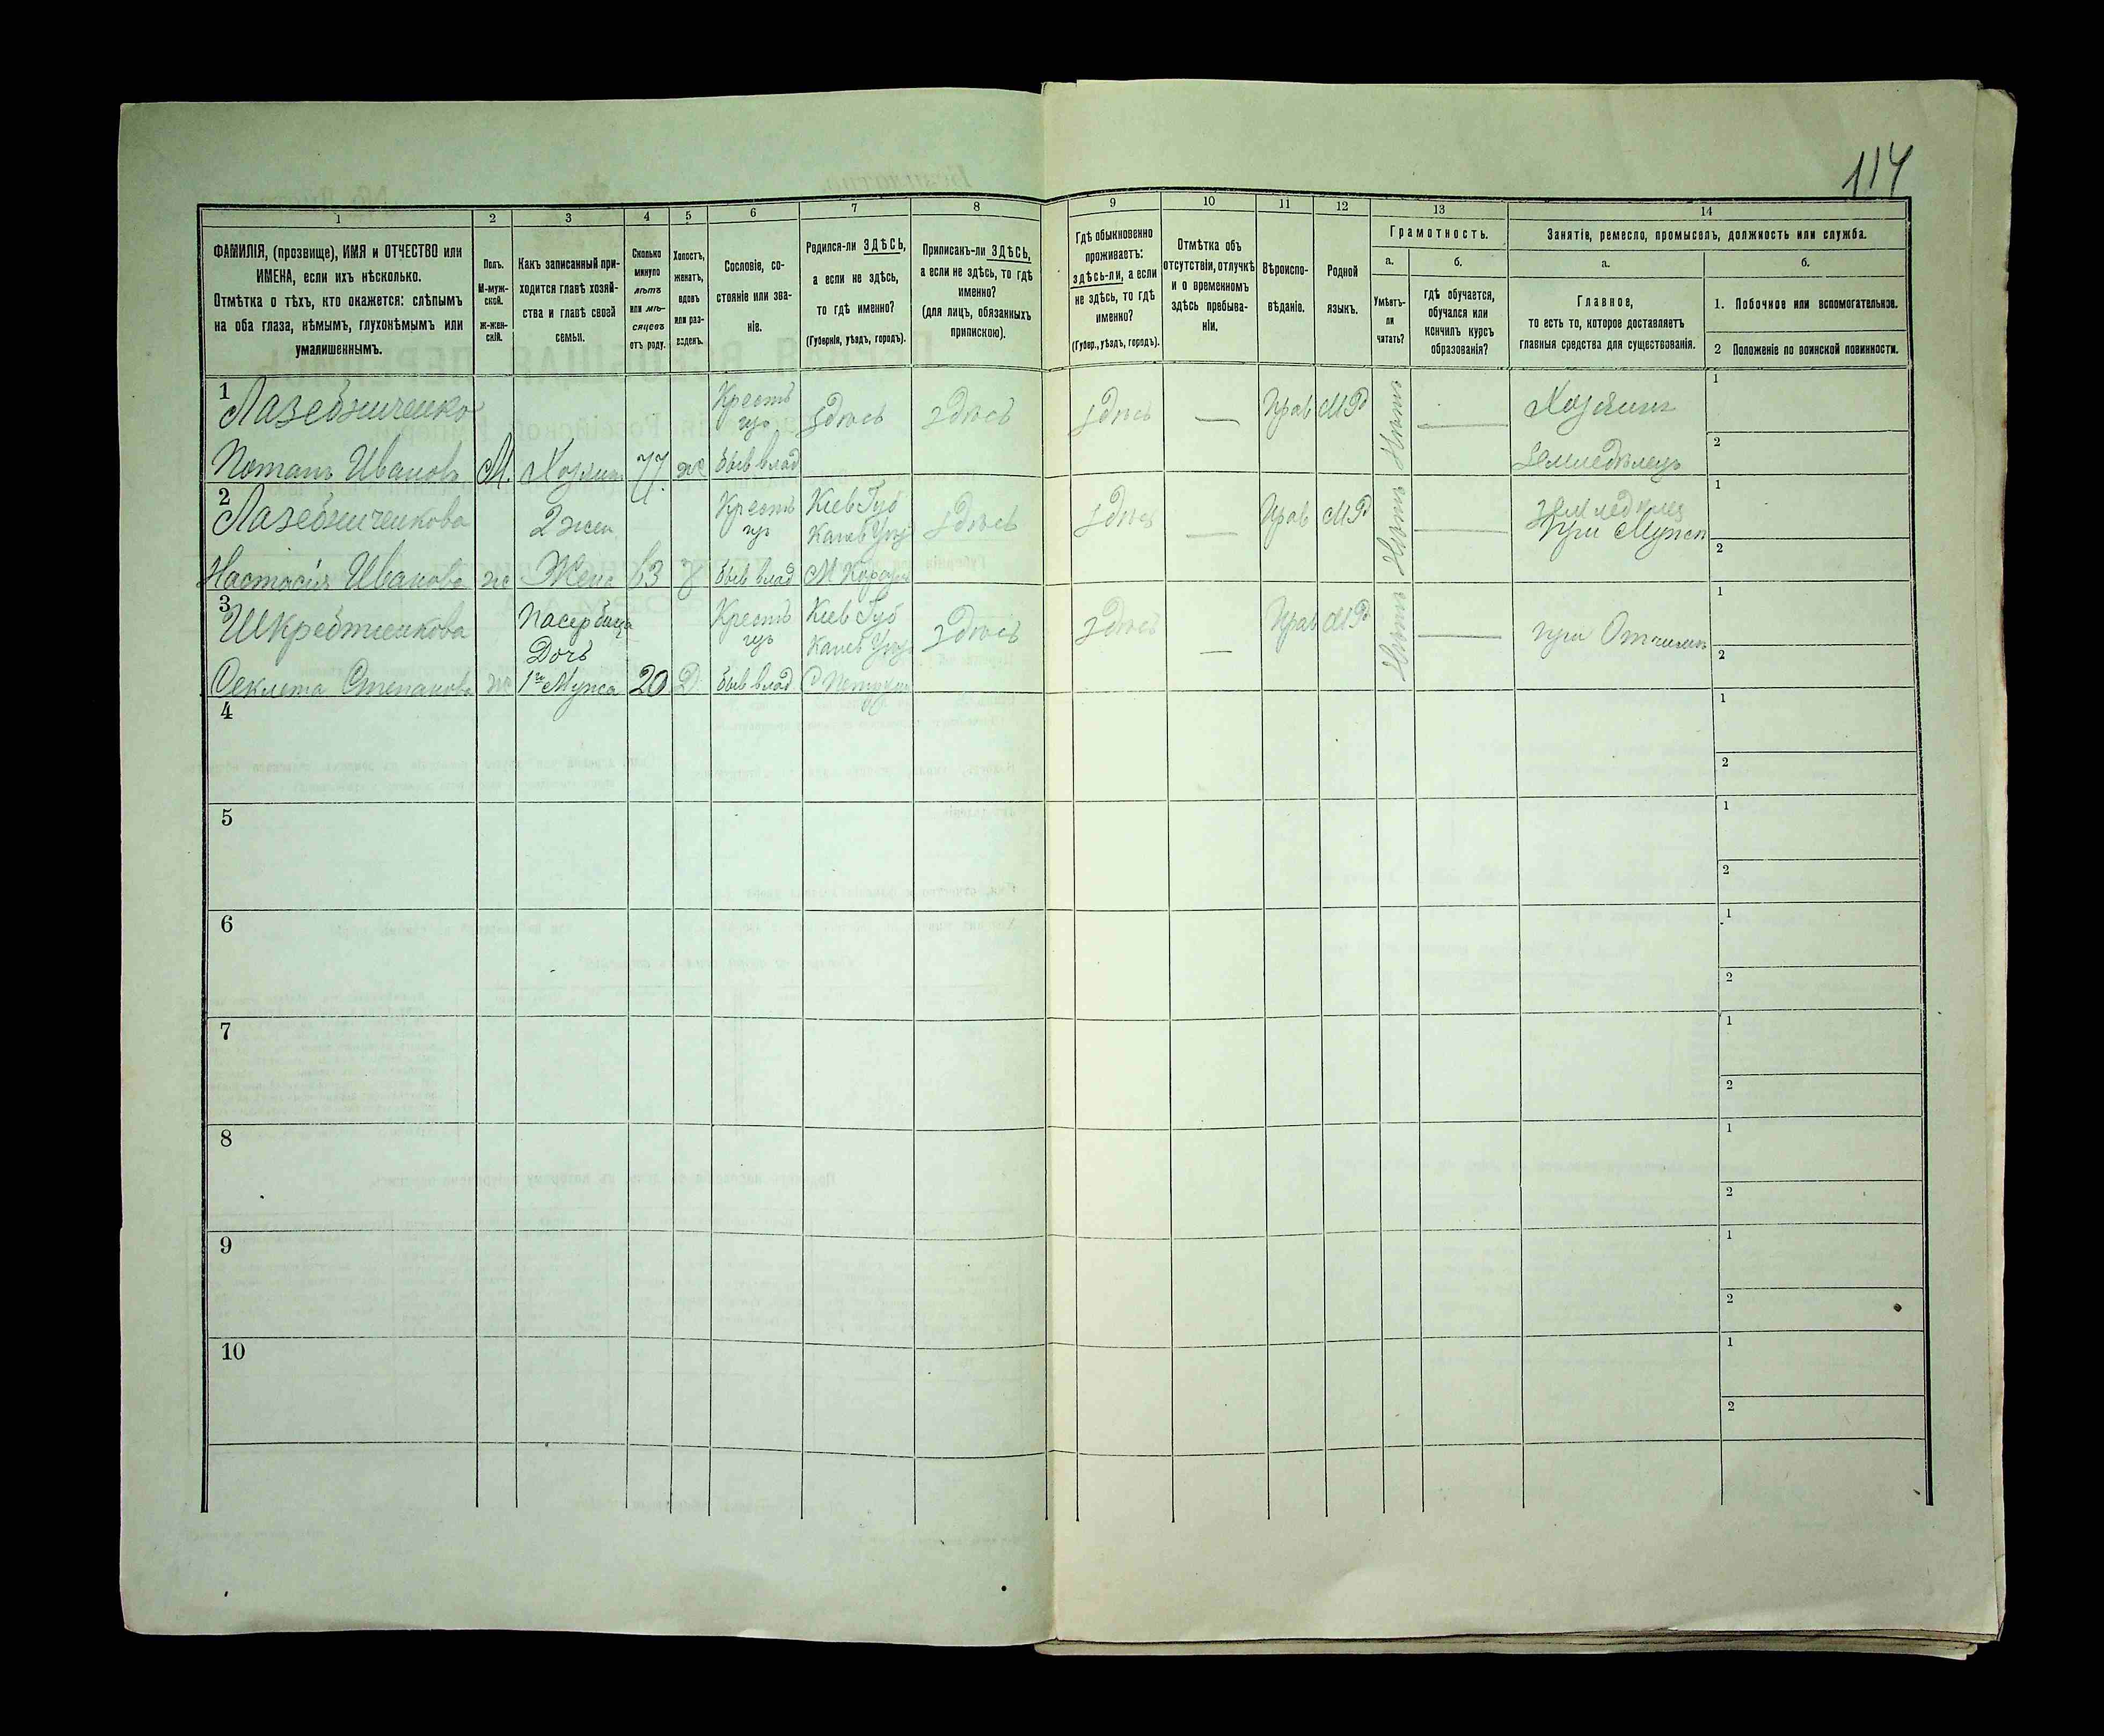 114
1
2
3
4
5
6
7
8
9
10
11
12
13
14
ФАМИЛІЯ, (прозвище), ИМЯ и ОТЧЕСТВО или
ИМЕНА, если ихъ нѣсколько.
Отмѣтка о тѣхъ, кто окажется: слѣпымъ
на оба глаза, нѣмымъ, глухонѣмымъ или
умалишеннымъ.
Полъ.
М-муж-
ской.
ж-жен-
скій.
Какъ записанный при-
ходится главѣ хозяй-
ства и главѣ своей
семьи.
Сколько
минуло
лѣтъ
или мѣ-
сяцевъ
отъ роду.
Холостъ,
женатъ,
вдовъ
или раз-
веденъ.
Сословіе, со-
стояніе или зва-
ніе.
Родился-ли ЗДѢСЬ,
а если не здѣсь,
то гдѣ именно?
(Губернія, уѣздъ, городъ).
Приписанъ-ли ЗДѢСЬ,
а если не здѣсь, то гдѣ
именно?
(для лицъ, обязанныхъ
припискою).
Гдѣ обыкновенно
проживаетъ:
здѣсь-ли, а если
не здѣсь, то гдѣ
именно?
(Губер., уѣздъ, городъ).
Отмѣтка объ
отсутствіи, отлучкѣ
и о временномъ
здѣсь пребыва-
ніи.
Вѣроиспо-
вѣданіе.
Родной
языкъ.
Грамотность.
а.
Умѣетъ-
ли
читать?
б.
гдѣ обучается,
обучался или
кончилъ курсъ
образованія?
Занятіе, ремесло, промыселъ, должность или служба.
а.
Главное,
то есть то, которое доставляетъ
главныя средства для существованія.
б.
1. Побочное или вспомогательное.
2 Положеніе по воинской повинности.
1
Лазебниченко
Потапъ Ивановъ
М.
Хозяин
77
ж
Крестъ
гуъ
быв влад
здѣсь
здѣсь
здѣсь
—
Прав
МР
Нѣтъ
—
Хозяинъ
Земледѣлецъ
1
2
2
Лазебниченкова
Настасія Иванова
ж
2 жен
Жена
63
Крестъ
гуъ
быв влад
Кіев Губ
Канев Уѣз
здѣсь
здѣсь
—
Прав
МР
Нѣтъ
—
земледѣлец
При Мужѣ
1
2
3
Шкребтіенкова
Секлета Степанова
ж
Пасербица
Дочь
1го Мужа
20
Д
Крестъ
гуъ
быв влад
Кіев Губ
Канев Уѣз
здѣсь
здѣсь
—
Прав
МР
Нѣтъ
—
при Отчимѣ
1
2
4
1
2
5
1
2
6
1
2
7
1
2
8
1
2
9
1
2
10
1
2